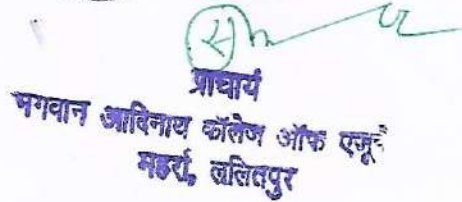 प्राचार्य
भगवान आदिनाथ कॉलेज ऑफ एजू
महर्रा, ललितपुर